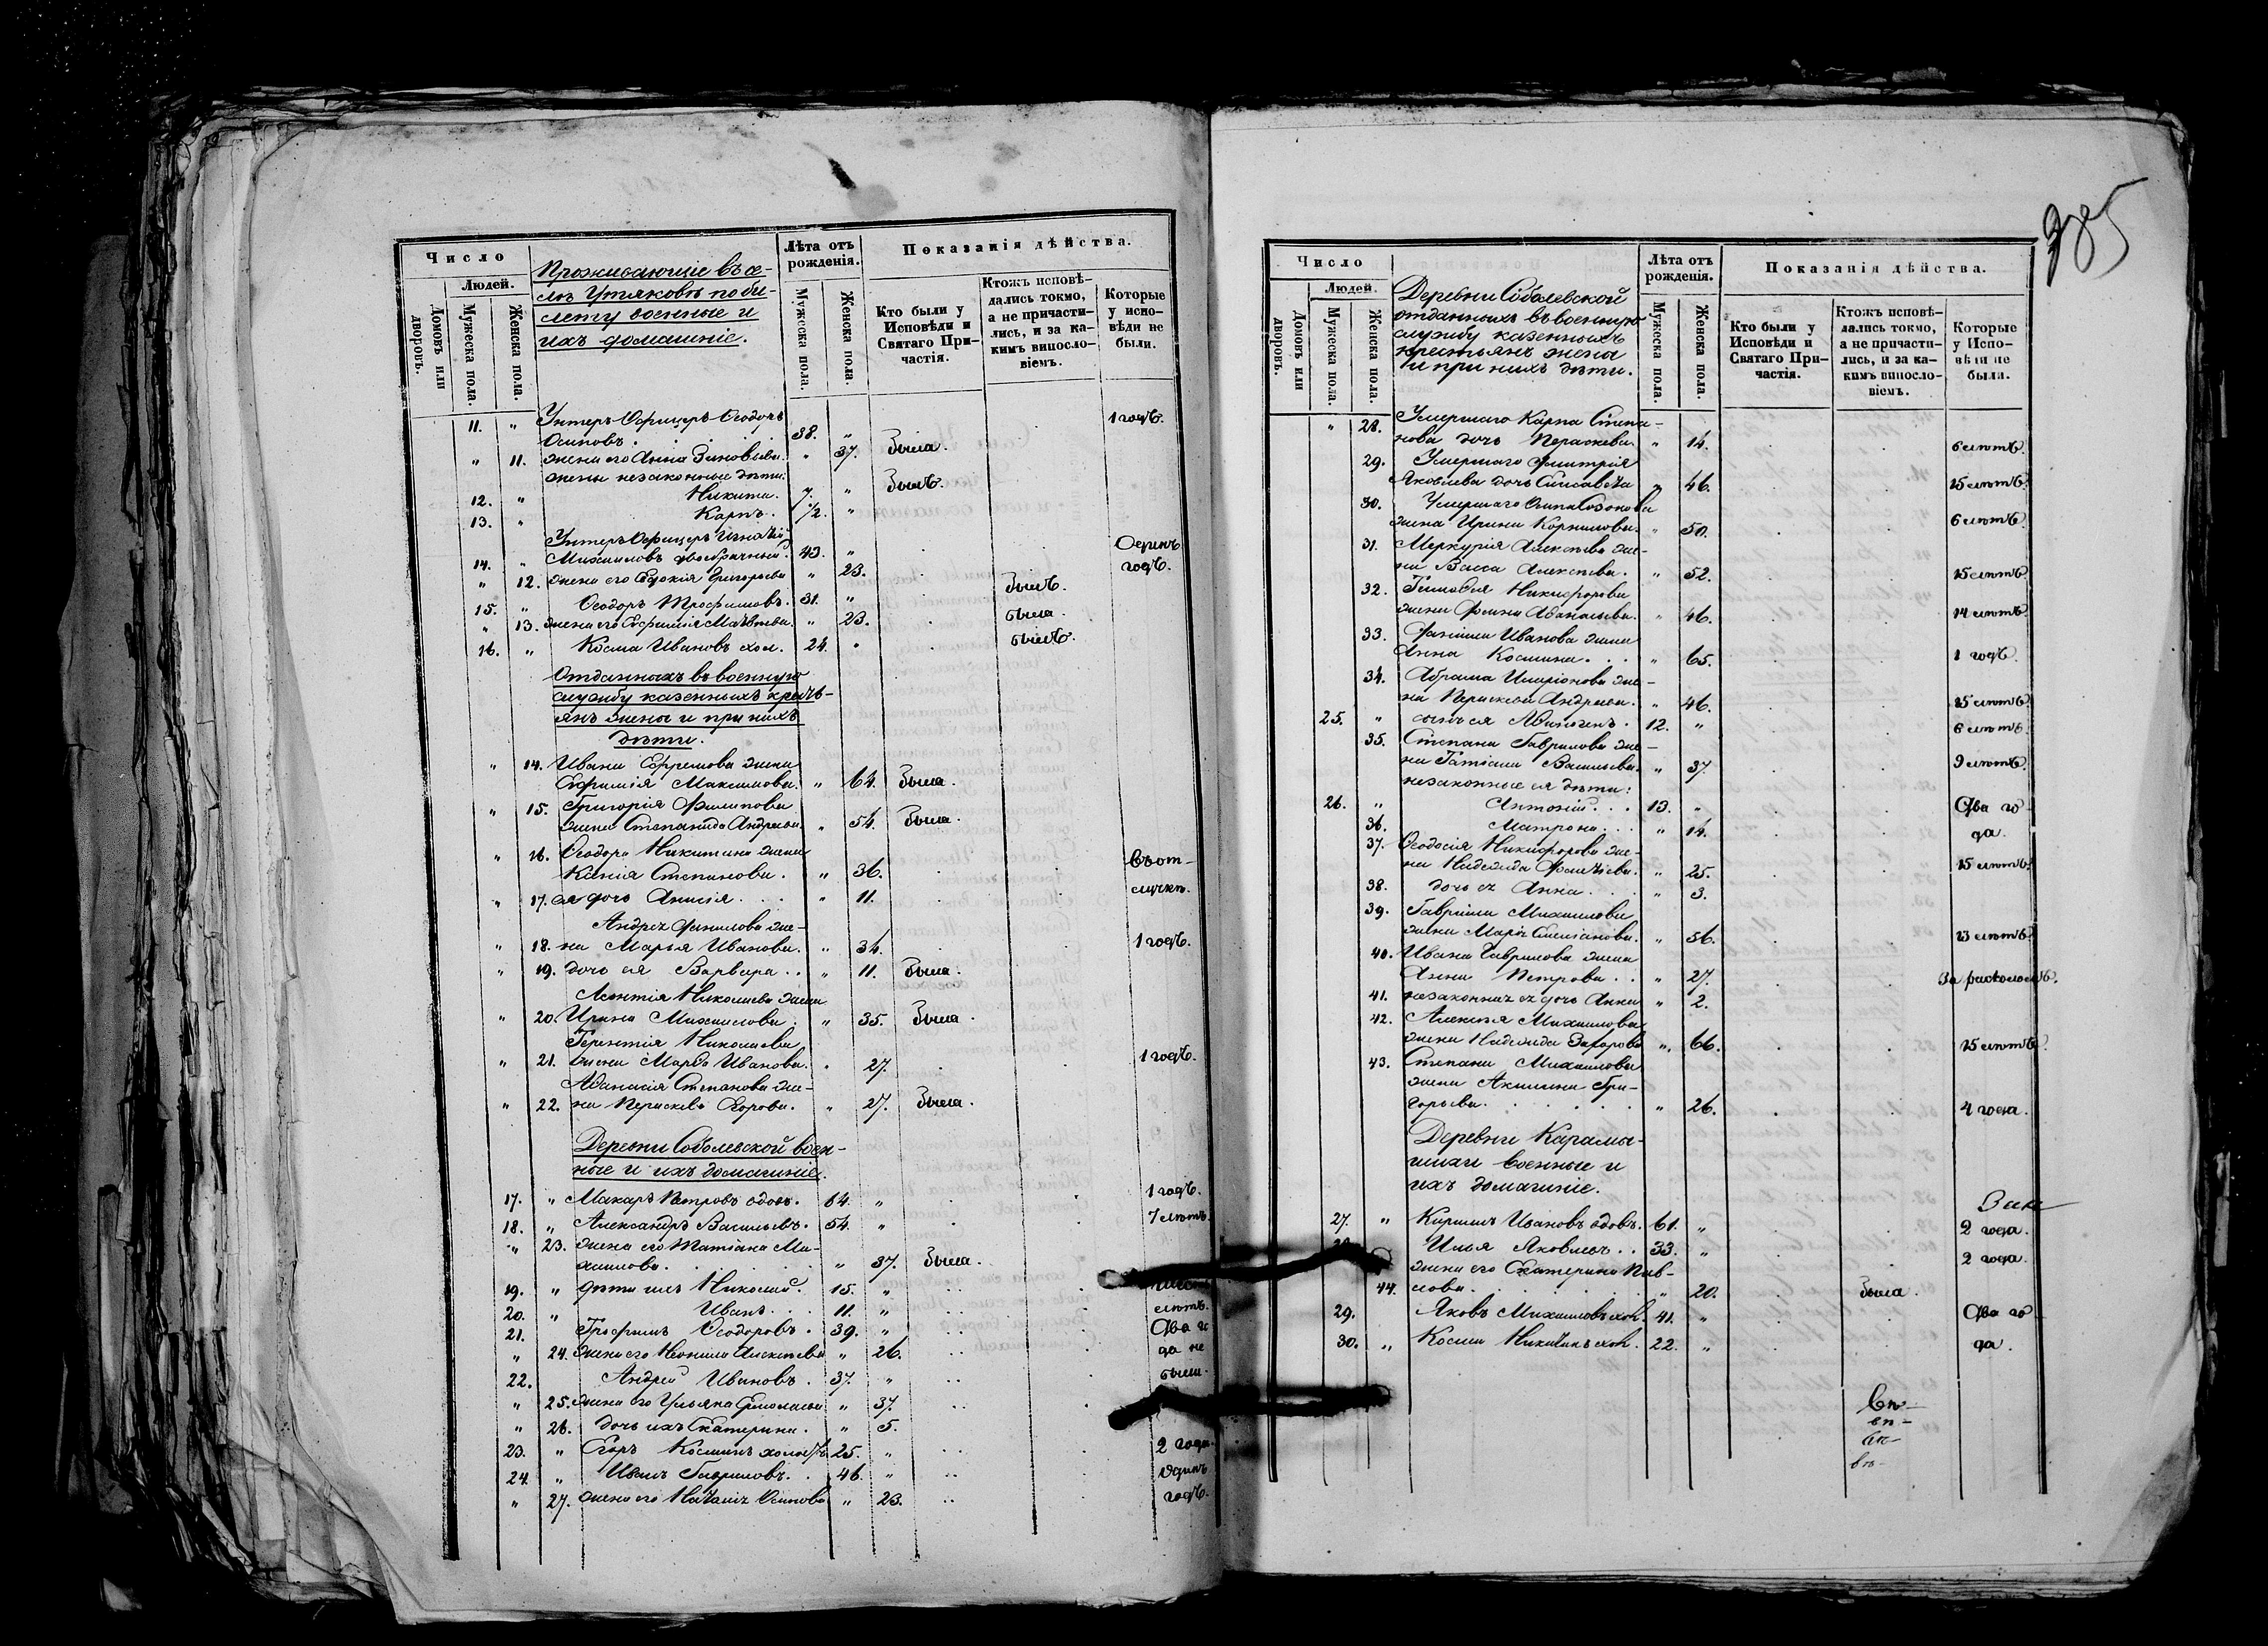 Число
Людей.
Домовъ или дворовъ.
Мужеска пола.
Женска пола.
Проживающіе въ се-
лѣ Утяковѣ по би-
лету военные и
ихъ домашніе.
Лѣта отъ рожденія.
Мужеска пола.
Женска пола.
Показанія дѣйства.
Кто были у Исповѣди и Святаго При-частія.
Ктожъ исповѣ-дались токмо, а не причасти-лись, и за ка-кимъ виносло-віемъ.
Которые у испо-вѣди не были.
11. „ Унтеръ-Офицеръ Ѳеодоръ
Осиповъ. 38. „ 1 годъ.
„ 11. жена его Анна Зиновьева. „ 37. Была.
жены незаконные дѣти.
12. „ Никита. 7. „ Былъ.
13. „ Карпъ. 1/2. „
Унтеръ Офицеръ Игнатій
14. „ Михаиловъ двобрачный. 43. „ Одинъ
„ 12. жена его Евдокія Григорьева „ 23. годъ.
15. „ Ѳеодоръ Трофимовъ. 31. „ Былъ.
„ 13. жена его Евфимія Матвѣева. „ 23. была.
16. „ Косма Ивановъ хол. 24. „ былъ.
Отданныхъ въ военную
службу казенныхъ кресть-
янъ жены и при нихъ
дѣти.
„ 14. Ивана Ефремова жена
Евфимія Максимова. „ 64. Была.
„ 15. Григорія Филипова
жена Степанида Андреева. „ 54. Была.
„ 16. Ѳеодора Никитина жена
Ксенія Степанова. „ 36. Въ от-
„ 17. ея дочь Анисія. „ 11. лучкѣ.
Андрея Данилова же-
„ 18. на Марья Иванова. „ 34. 1 годъ.
„ 19. дочь ея Варвара. „ 11. Была.
Леонтія Николаева жена
„ 20. Ирина Михаилова. „ 35. Была.
Терентія Николаева
„ 21. жена Марѳа Иванова. „ 27. 1 годъ.
Аѳанасія Степанова же-
„ 22. на Параскева Егорова. „ 27. Была.
Деревни Соболевской воен-
ные и ихъ домашніе.
17. „ Макаръ Петровъ вдовъ. 64. „ 1 годъ.
18. „ Александръ Васильевъ. 54. „ 7 лѣтъ.
„ 23. жена его Татіана Ми-
хаилова. „ 37. Была.
19. „ дѣти ихъ Николай. 15. „
20. „ Иванъ. 11. „ лѣтъ.
21. Трофимъ Ѳеодоровъ. 39. „ Два го
„ 24. жена его Неонила Алексѣева „ 26. да не
22. Андрей Ивановъ. 37. „ были.
„ 25. жена его Ульяна Ермолаева „ 37.
„ 26. дочь ихъ Екатерина. „ 5.
23. „ Егоръ Косминъ холостъ 25. „ 2 года.
24. „ Иванъ Гавриловъ. 46. „ Одинъ
„ 27. жена его Наталія Осипова „ 23. годъ.
385
Число
Людей.
Домовъ или дворовъ.
Мужеска пола.
Женска пола.
Деревни Соболевской
отданныхъ въ военную
службу казенныхъ
крестьянъ жены
и при нихъ дѣти.
Лѣта отъ рожденія.
Мужеска пола.
Женска пола.
Показанія дѣйства.
Кто были у Исповѣди и Святаго При-частія.
Ктожъ исповѣ-дались токмо, а не причасти-лись, и за ка-кимъ виносло-віемъ.
Которые у Испо-вѣди не были.
„ 28. Умершаго Карпа Степа-
нова дочь Параскева. „ 14. 6 лѣтъ.
29. Умершаго Димитрія
Яковлева дочь Елисавета „ 46. 15 лѣтъ.
30. Умершаго Созонова
жена Ирина Корнилова. „ 50. 6 лѣтъ.
31. Меркурія Алексѣева же-
на Васса Алексѣева. „ 52. 15 лѣтъ.
32. Тимоѳея Никифорова
жена Фаина Аѳанасьева. „ 46. 14 лѣтъ.
33. Даніила Иванова жена
Анна Космина. „ 65. 1 годъ.
34. Абрама Иларіонова же-
на Параскева Андреева. „ 46. 15 лѣтъ.
25. „ сынъ ея Аѳиногенъ. 12. „ 6 лѣтъ.
35. Степана Гаврилова же-
на Татіана Васильева. „ 37. 9 лѣтъ.
незаконные ея дѣти:
26. „ Антоній. 13. „ Два го-
36. Матрона. „ 14. да.
37. Ѳеодосія Никифорова же-
на Надежда „ 25. 15 лѣтъ.
38. дочь ея Анна. „ 3.
39. Гавріила Михаилова
жена Марія Емеліанова. „ 56. 13 лѣтъ.
40. Ивана Гаврилова жена
Анна Петрова. „ 27. За расколомъ.
41. незаконная ея дочь Анна „ 2.
42. Алексѣя Михаилова
жена Надежда Захарова „ 66. 15 лѣтъ.
43. Степана Михаилова
жена Акилина Гри-
горьева. „ 26. 4 года.
Деревни Карамы-
шихи военные и
ихъ домашніе.
27. „ Кириллъ Ивановъ вдовъ. 61. „ 2 года.
Илья Яковлевъ. 33. „ 2 года.
жена его Екатерина Пав-
44. лова. „ 20. Была.
29. Яковъ Михаиловъ хол. 41. „ Два го
30. „ Косма Никитинъ хол. 22. „ да.